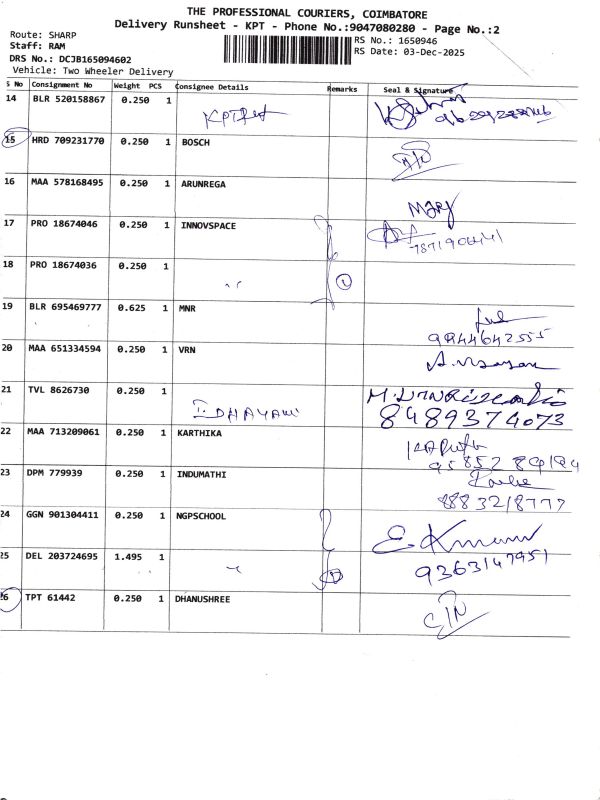 THE PROFESSIONAL COURIERS, COIMBATORE
Delivery Runsheet - KPT - Phone No.:9047080280 - Page No.:2
Route: SHARP
Staff: RAM
DRS No.: DCJB165094602
Vehicle: Two Wheeler Delivery
RS No.: 1650946
RS Date: 03-Dec-2025
S No Consignment No Weight PCS Consignee Details Remarks Seal & Signature
14 BLR 520158867 0.250 1
15 HRD 709231770 0.250 1 BOSCH
16 MAA 578168495 0.250 1 ARUNREGA
Mary
17 PRO 18674046 0.250 1 INNOVSPACE
18 PRO 18674036 0.250 1 1
19 BLR 695469777 0.625 1 MNR
9944642555
20 MAA 651334594 0.250 1 VRN
21 TVL 8626730 0.250 1 IDHAYAM
8489374073
22 MAA 713209061 0.250 1 KARTHIKA
23 DPM 779939 0.250 1 INDUMATHI
8883218777
24 GGN 901304411 0.250 1 NGPSCHOOL
25 DEL 203724695 1.495 1
9363147951
26 TPT 61442 0.250 1 DHANUSHREE